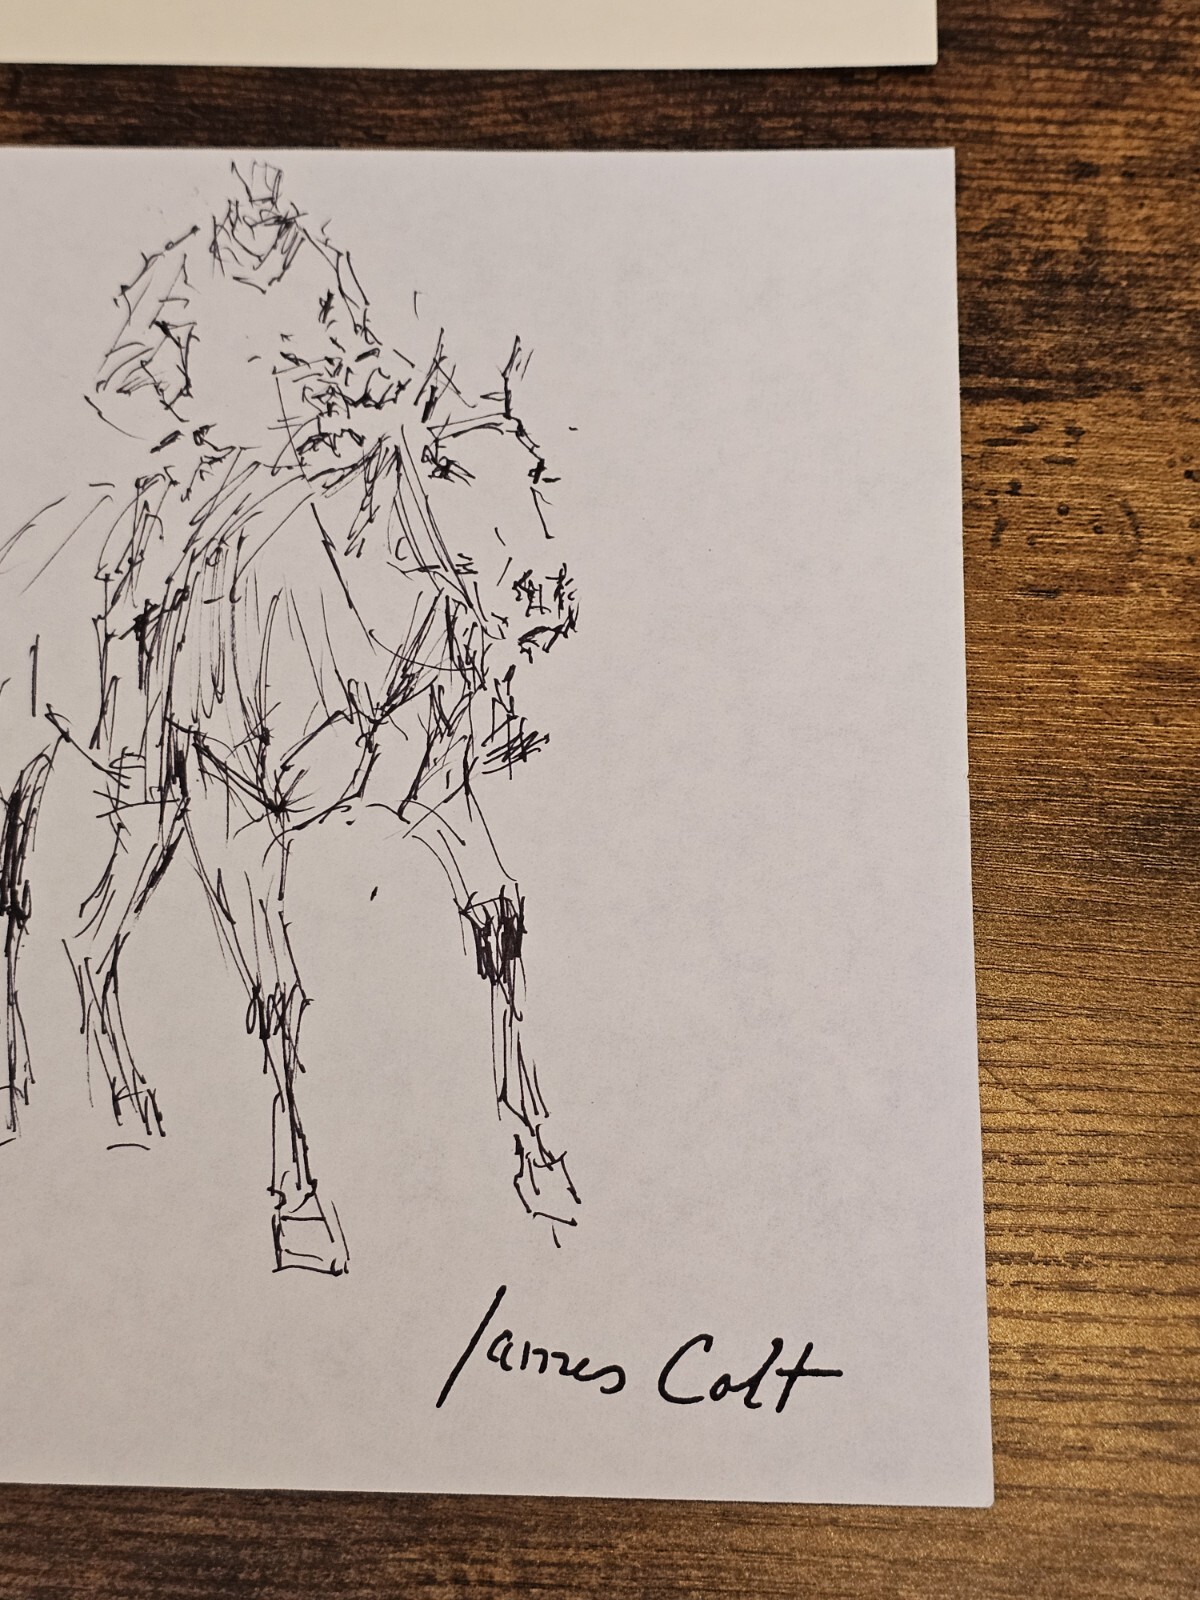 James Colt